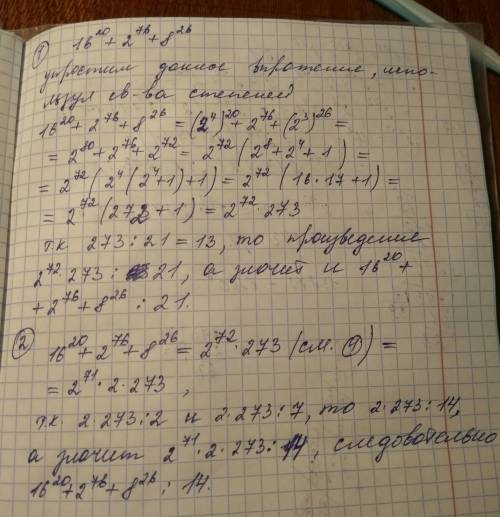 ① 16²⁰ + 2⁷⁶ + 8²⁶
упростим данное выражение, испо-
льзуя св-ва степеней
16²⁰ + 2⁷⁶ + 8²⁶ = (2⁴)²⁰ + 2⁷⁶ + (2³)²⁶ =
= 2⁸⁰ + 2⁷⁶ + 2⁷² = 2⁷² (2⁸ + 2⁴ + 1) =
= 2⁷² (2⁴ (2⁴+1)+1) = 2⁷² (16·17+1) =
= 2⁷² (272 + 1) = 2⁷²·273
т.к. 273 : 21 = 13, то произведение
2⁷²·273 ⋮ 21, а значит и 16²⁰ +
+ 2⁷⁶ + 8²⁶ ⋮ 21.
② 16²⁰ + 2⁷⁶ + 8²⁶ = 2⁷²·273 (см. ①) =
= 2⁷¹·2·273,
т.к. 2·273 ⋮ 2 и 2·273 ⋮ 7, то 2·273 ⋮ 14,
а значит 2⁷¹·2·273 ⋮ 14, следовательно
16²⁰ + 2⁷⁶ + 8²⁶ ⋮ 14.